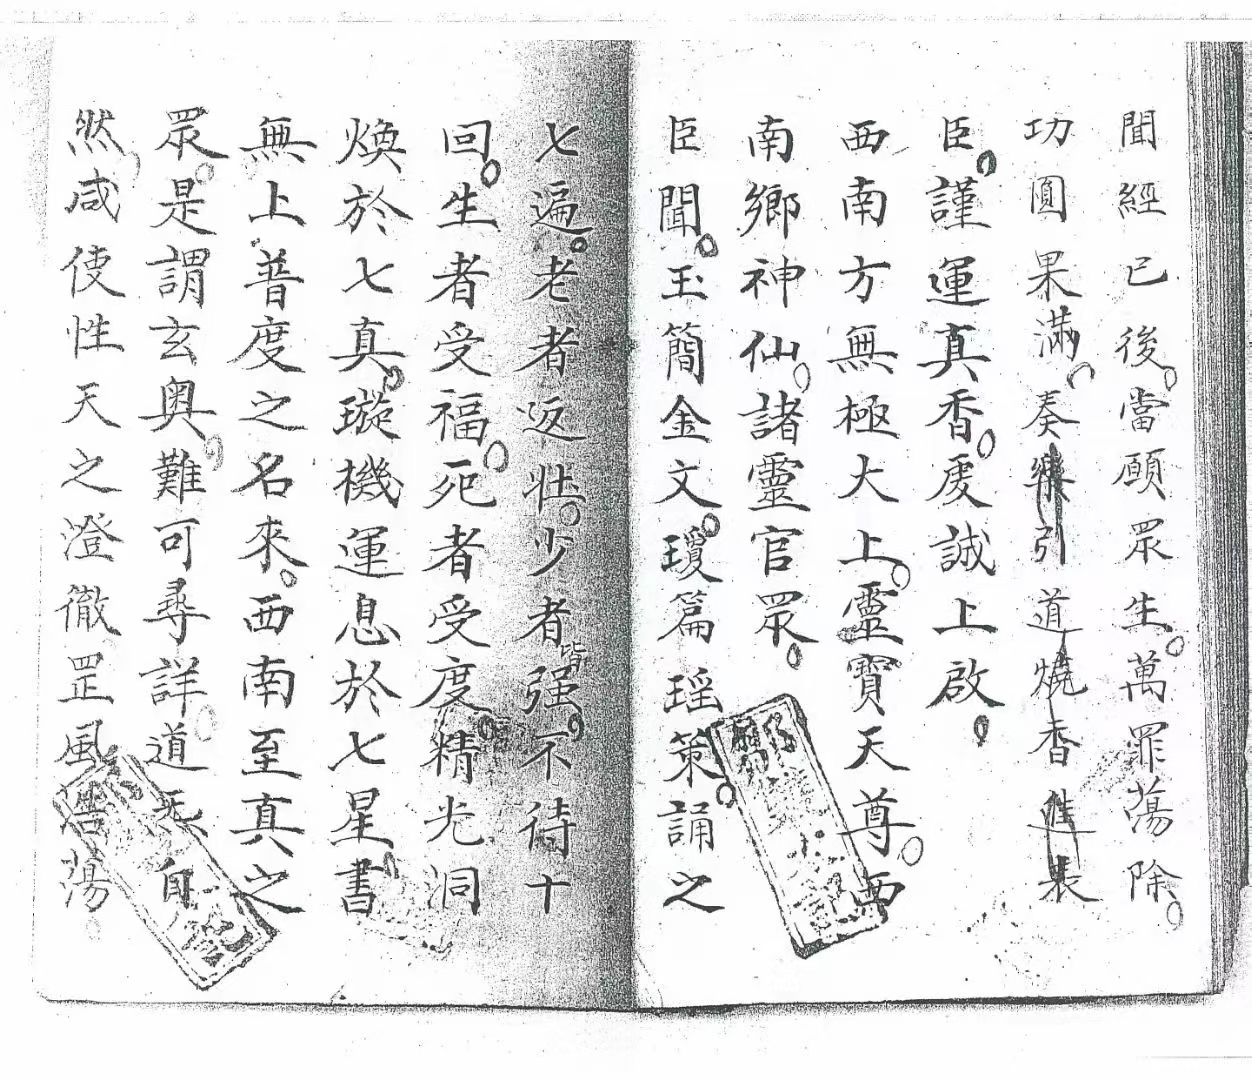 聞經已後。當願眾生。萬罪蕩除。
功圓果滿。奏樂引道燒香進表
臣。謹運真香。虔誠上啟。
西南方無極大上。靈寶天尊。西
南鄉神仙。諸靈官眾。
臣聞。玉簡金文。瓊篇瑶策。誦之
七遍。老者返壯。少者皆强。不待十
回。生者受福。死者受度。精光洞
煥於七真。璇機運息於七星書
無上普度之名來。西南至真之
眾。是謂玄奥。難可尋詳。道炁自
然。咸使性天之澄徹罡風浩蕩。